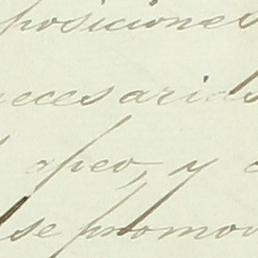 posiciones
necesarias
apeo, y
se promov